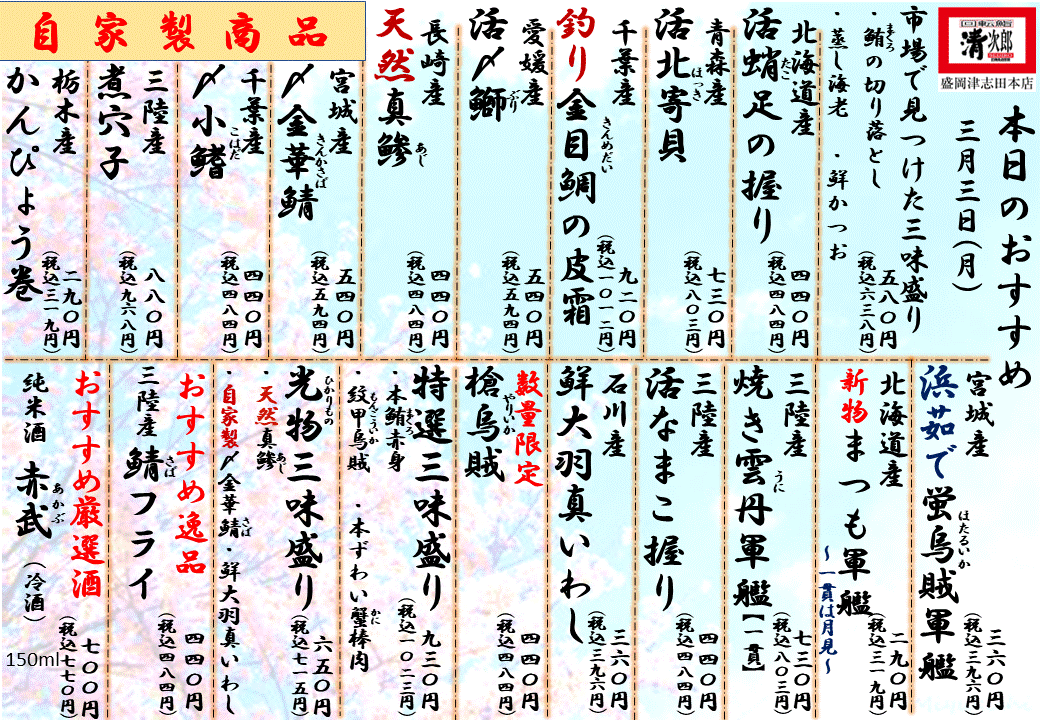 回転鮨
清次郎
盛岡津志田本店
本日のおすすめ
三月三日(月)
市場で見つけた三味盛り
・鮪の切り落とし
まぐろ
・蒸し海老 ・鮮かつお
五八〇円
(税込六三八円)
北海道産
活蛸足の握り
たこ
四四〇円
(税込四八四円)
青森産
活北寄貝
ほっき
七三〇円
(税込八〇三円)
千葉産
釣り金目鯛の皮霜
きんめだい
九二〇円
(税込一〇一二円)
愛媛産
活〆鰤
ぶり
五四〇円
(税込五九四円)
長崎産
天然真鯵
あじ
四四〇円
(税込四八四円)
自家製商品
宮城産
〆金華鯖
きんかさば
五四〇円
(税込五九四円)
千葉産
〆小鰭
こはだ
四四〇円
(税込四八四円)
三陸産
煮穴子
八八〇円
(税込九六八円)
栃木産
かんぴょう巻
二九〇円
(税込三一九円)
宮城産
浜茹で蛍烏賊軍艦
ほたるいか
三六〇円
(税込三九六円)
北海道産
新物まつも軍艦
二九〇円
(税込三一九円)
~一貫は月見~
三陸産
焼き雲丹軍艦【一貫】
うに
七三〇円
(税込八〇三円)
三陸産
活なまこ握り
四四〇円
(税込四八四円)
石川産
鮮大羽真いわし
三六〇円
(税込三九六円)
数量限定
槍烏賊
やりいか
四四〇円
(税込四八四円)
特選三味盛り
・本鮪赤身
まぐろ
・紋甲烏賊 ・本ずわい蟹棒肉
もんごういか
かに
九三〇円
(税込一〇二三円)
光物三味盛り
ひかりもの
・天然真鯵
あじ
・自家製〆金華鯖 ・鮮大羽真いわし
さば
六五〇円
(税込七一五円)
おすすめ逸品
三陸産 鯖フライ
さば
四四〇円
(税込四八四円)
おすすめ厳選酒
純米酒 赤武 (冷酒)
あかぶ
150ml
七〇〇円
(税込七七〇円)